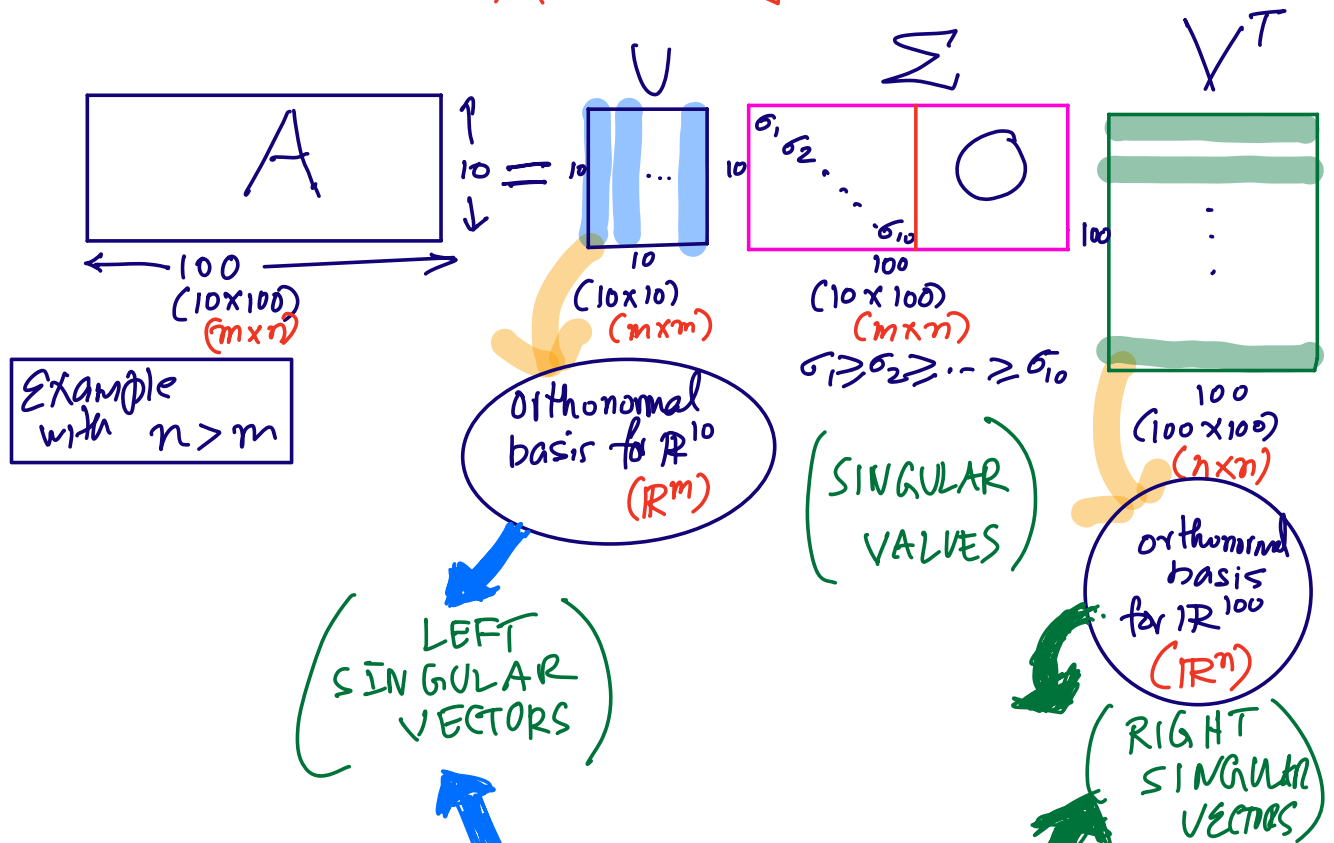 U
Σ
Vᵀ
A
10
=
10
...
10
σ₁
σ₂
σ₁₀
O
100
100
(10×100)
(m×n)
10
(10×10)
(m×m)
100
(10×100)
(m×n)
σ₁≥σ₂≥...≥σ₁₀
100
(100×100)
(n×n)
Example
with n>m
orthonormal
basis for ℝ¹⁰
(ℝᵐ)
(SINGULAR
VALUES)
orthonormal
basis
for ℝ¹⁰⁰
(ℝⁿ)
(LEFT
SINGULAR
VECTORS)
(RIGHT
SINGULAR
VECTORS)